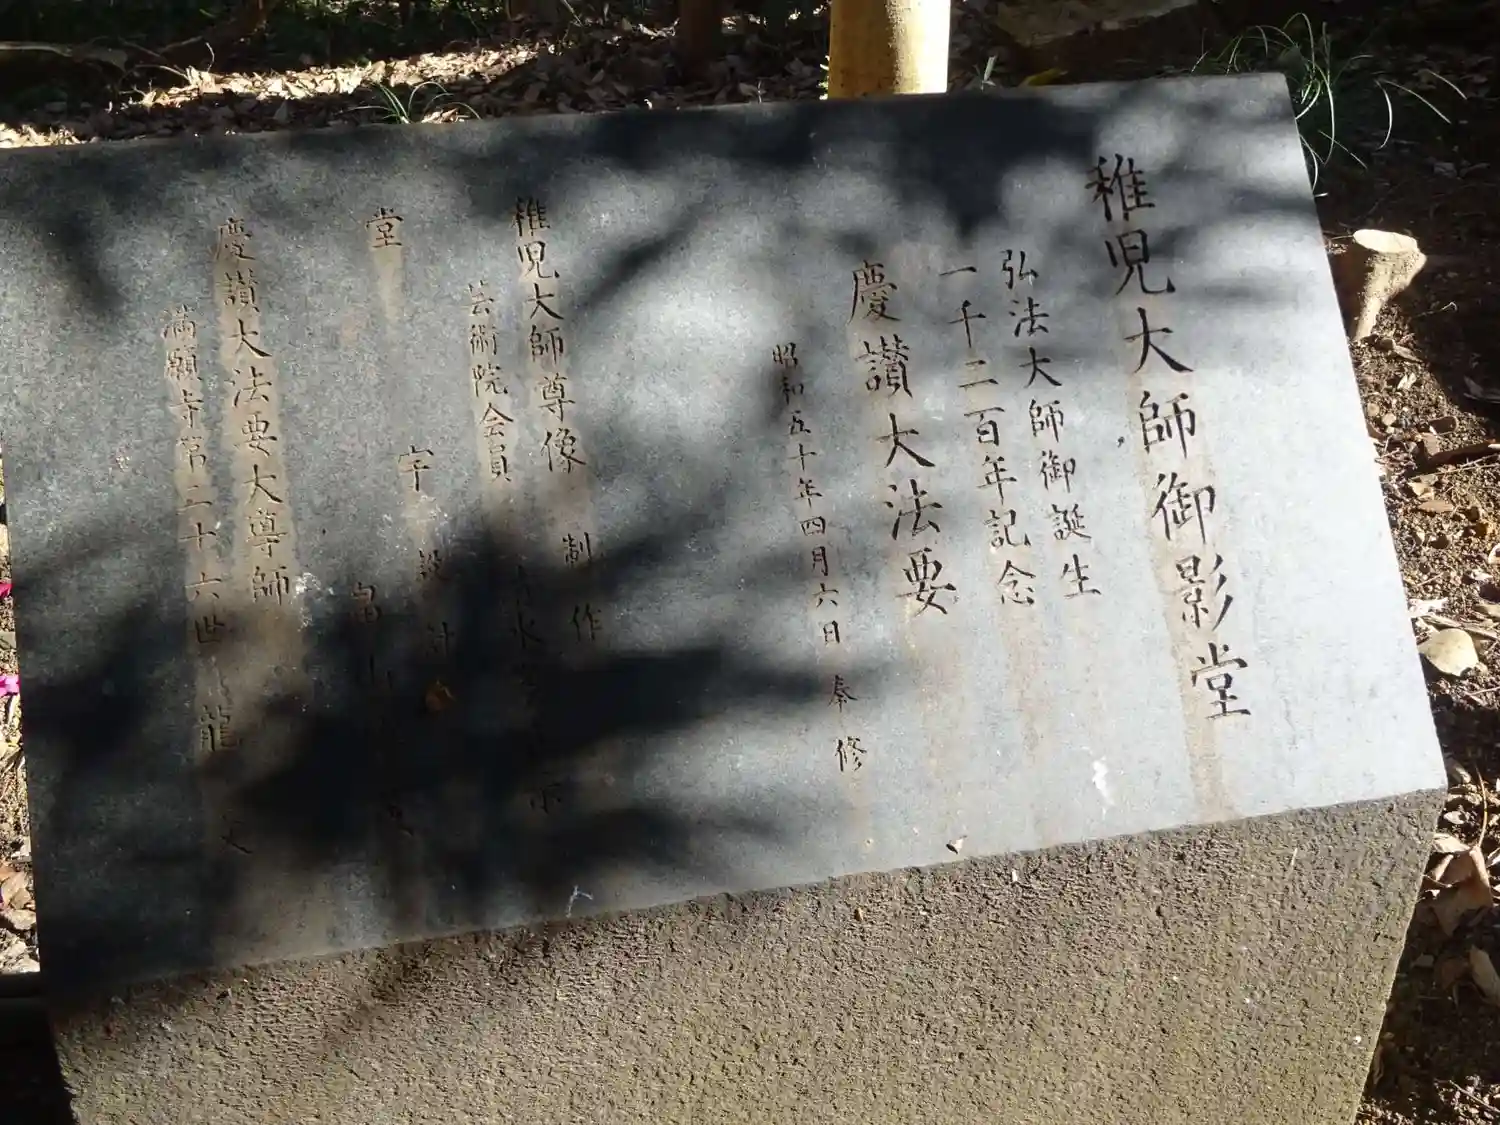 稚児大師御影堂
弘法大師御誕生
一千二百年記念
慶讃大法要
昭和五十年四月六日 奉修
稚児大師尊像 制作
芸術院会員
堂 宇 設計
慶讃大法要大導師
満願寺第二十六世 龍